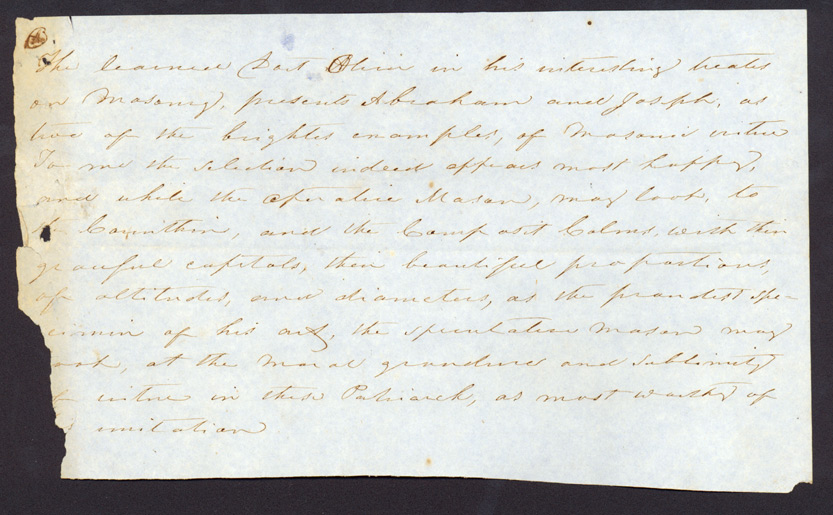 The learned Past Oliver in his interesting treatis
on Masonry, presents Abraham and Joseph, as
two of the brightes examples, of Masonic virtue
To me the selection indeed appears most happy,
and while the operative Mason, may look, to
the Corinthin, and the Composit Colms, with thier
graceful capitals, their beautiful proportions,
of altitudes, and diameters, as the grandest spe-
cimin of his art, the speculative Mason may
ook, at the Moral grandure and sublimity
virtue in these Patriarch, as most worthy of
imitation